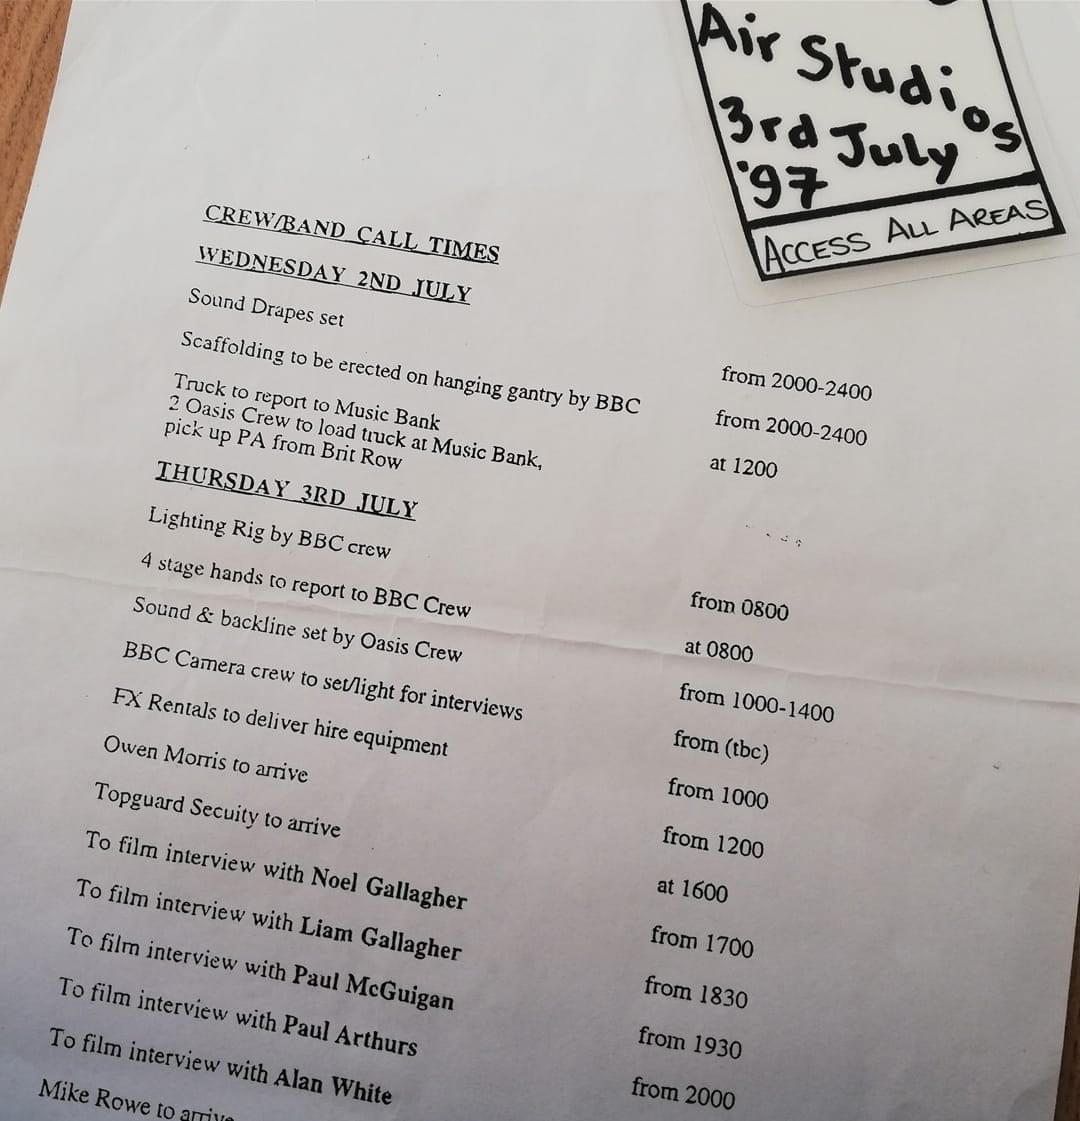 Air Studios
3rd July
'97
ACCESS ALL AREAS
CREW/BAND CALL TIMES
WEDNESDAY 2ND JULY
Sound Drapes set from 2000-2400
Scaffolding to be erected on hanging gantry by BBC from 2000-2400
Truck to report to Music Bank at 1200
2 Oasis Crew to load truck at Music Bank,
pick up PA from Brit Row
THURSDAY 3RD JULY
Lighting Rig by BBC crew from 0800
4 stage hands to report to BBC Crew at 0800
Sound & backline set by Oasis Crew from 1000-1400
BBC Camera crew to set/light for interviews from (tbc)
FX Rentals to deliver hire equipment from 1000
Owen Morris to arrive from 1200
Topguard Secuity to arrive at 1600
To film interview with Noel Gallagher from 1700
To film interview with Liam Gallagher from 1830
To film interview with Paul McGuigan from 1930
To film interview with Paul Arthurs from 2000
To film interview with Alan White
Mike Rowe to arrive